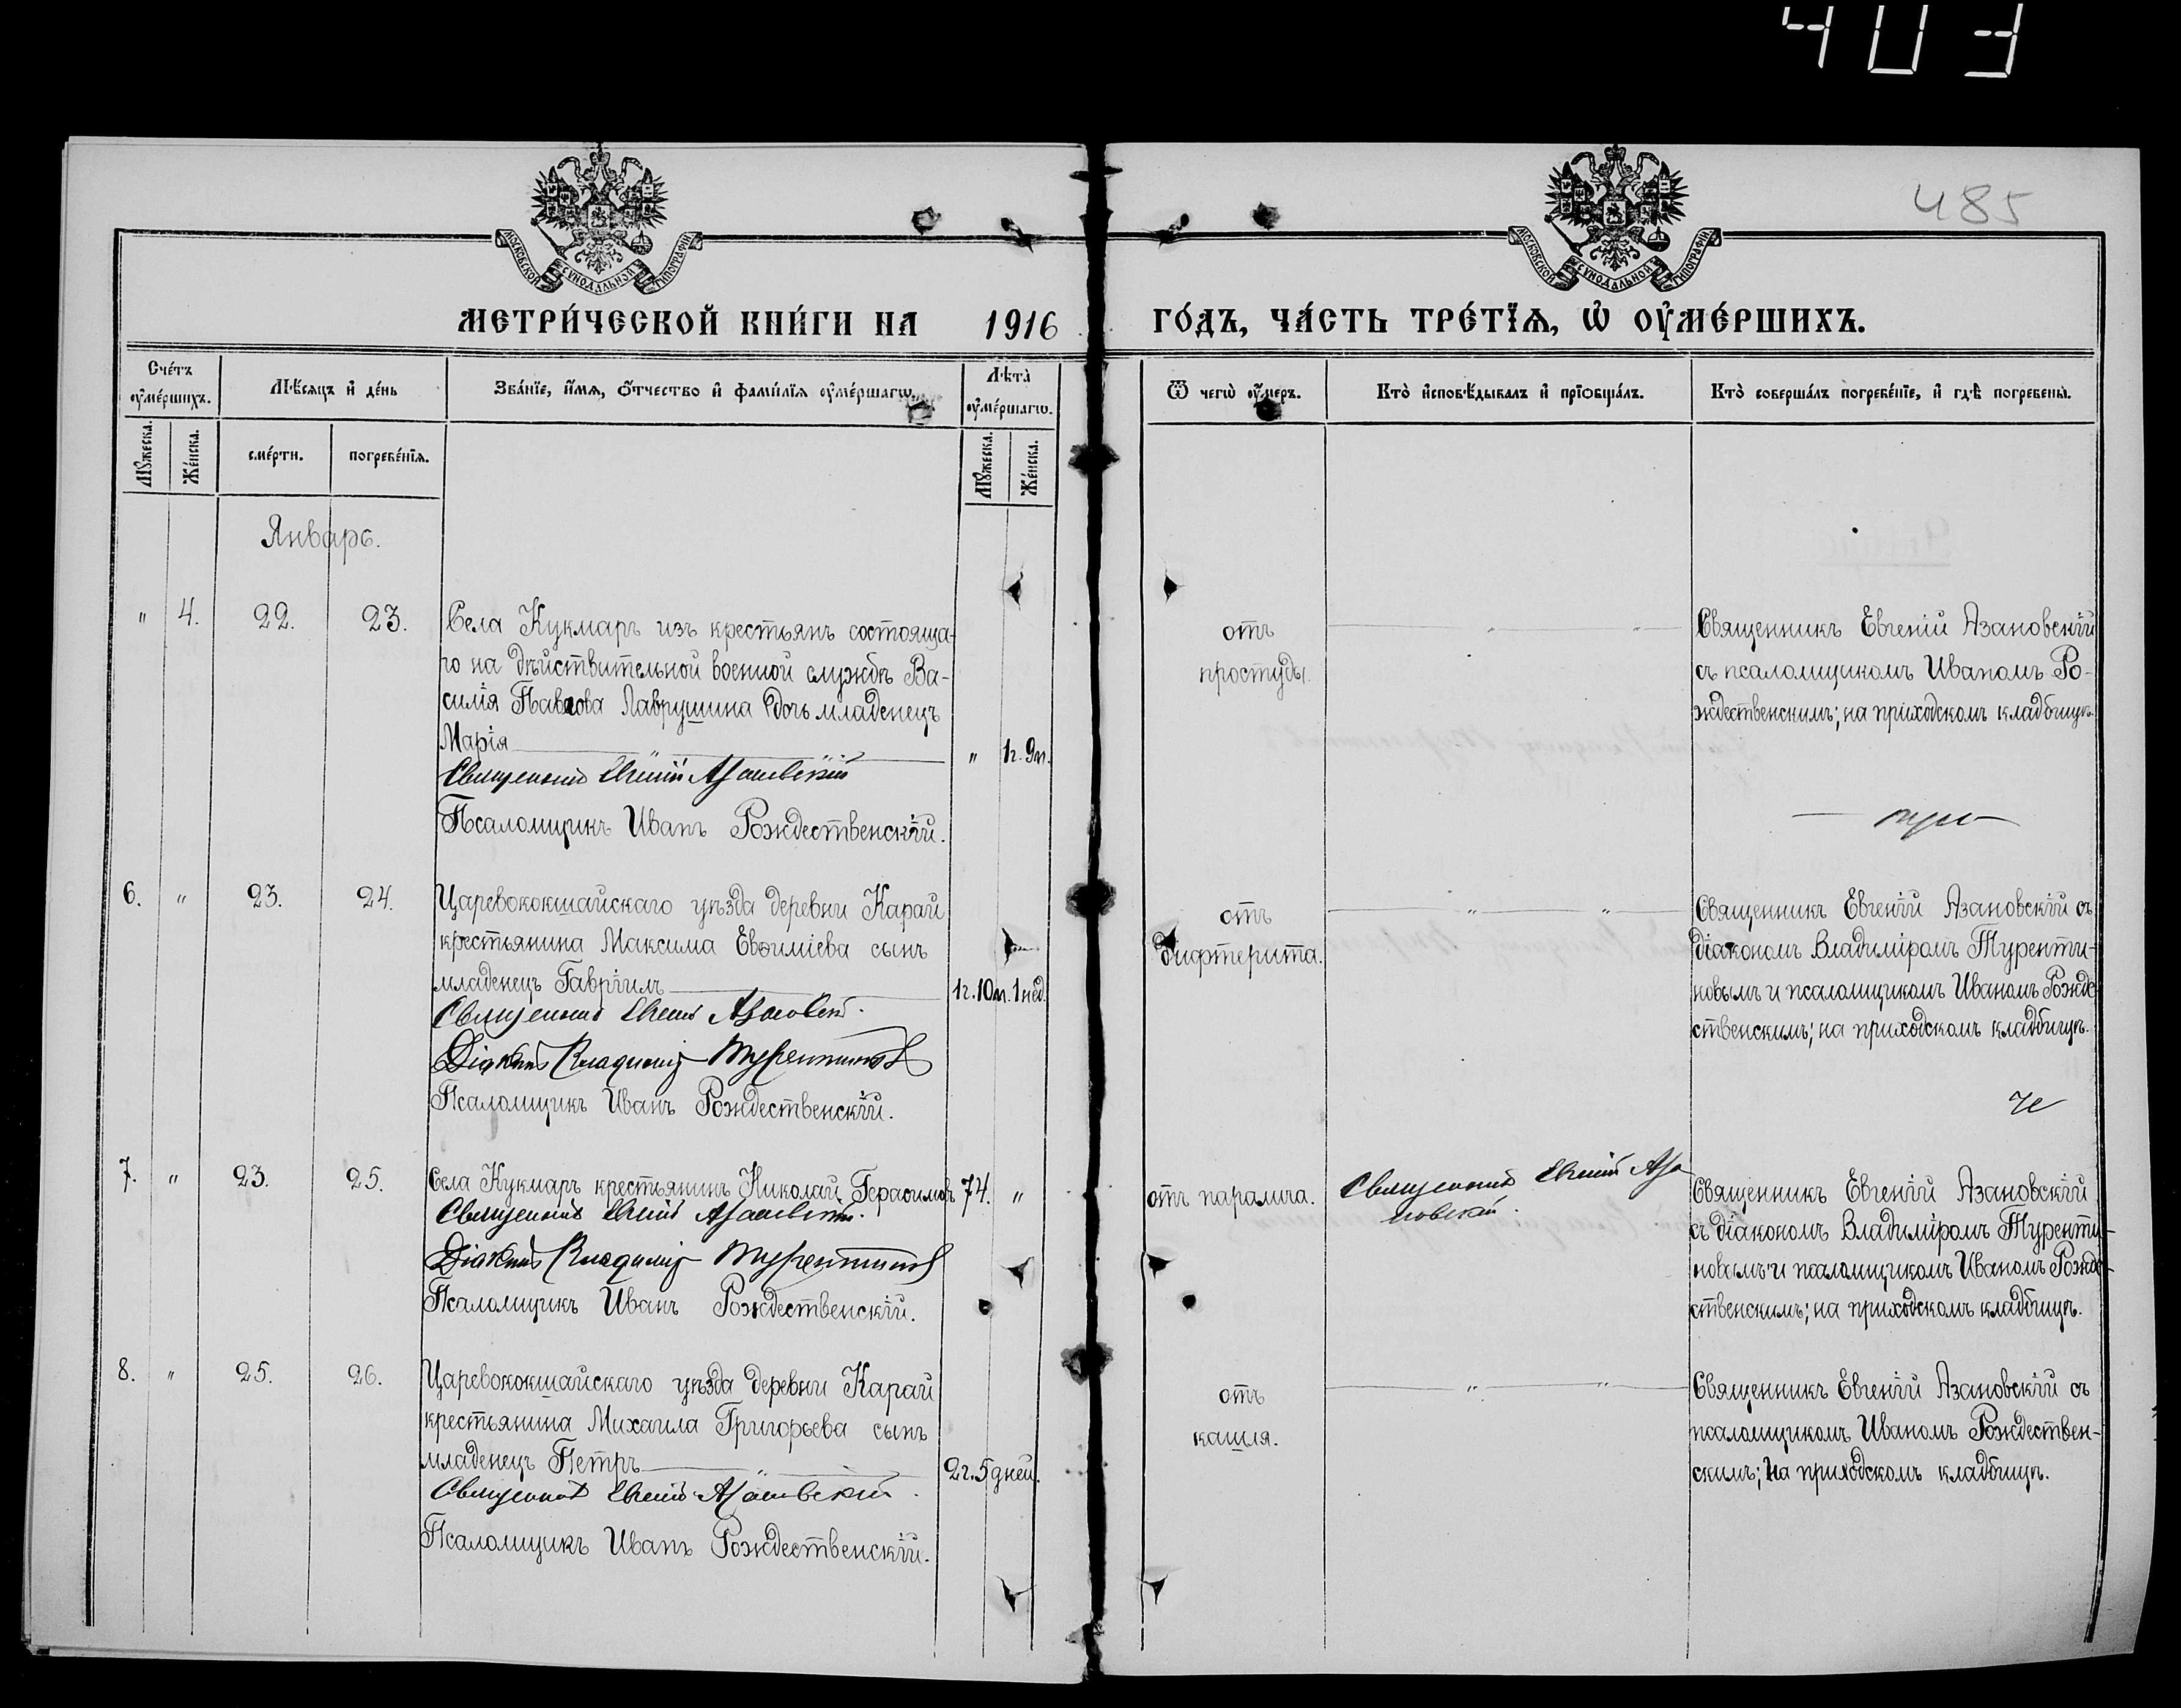 403
485
МОСКОВСКОЙ СѴНОДАЛЬНОЙ ТИПОГРАФІИ
МОСКОВСКОЙ СѴНОДАЛЬНОЙ ТИПОГРАФІИ
МЕТРИ́ЧЕСКОЙ КНИ́ГИ НА 1916 ГО́ДЪ, ЧА́СТЬ ТРЕ́ТЇѦ, Ѡ҆ ОУ҆МЕ́РШИХЪ.
Сче́тъ оу҆ме́ршихъ.
Мѣ́сяцъ и҆ де́нь
Зва́нїе, и҆́мѧ, ѻ҆́тчество и҆ фами́лїѧ оу҆ме́ршагѡ.
Лѣ́та оу҆ме́ршагѡ.
Ѿ чегѡ̀ оу҆́меръ.
Кто̀ и҆сповѣ́дывалъ и҆ прїѻбща́лъ.
Кто̀ соверша́лъ погребе́нїе, и҆ гдѣ̀ погребены̀.
Мꙋ́жеска.
Же́нска.
сме́рти.
погребе́нїѧ.
Мꙋ́жеска.
Же́нска.
Январь.
" 4. 22. 23.
Села Кукмаръ изъ крестьянъ состояща-
го на дѣйствительной военной службѣ Ва-
силія Павлова Лаврушина дочь младенецъ
Марія
" 1г. 9м.
Священникъ Евгеній Азановскій
Псаломщикъ Иванъ Рождественскій.
отъ
простуды.
Священникъ Евгеній Азановскій
съ псаломщикомъ Иваномъ Ро-
ждественскимъ; на приходскомъ кладбищѣ.
6. " 23. 24.
Царевококшайскаго уѣзда деревни Карай
крестьянина Максима Евѳиміева сынъ
младенецъ Гавріилъ
1г. 10м. 1нед.
Священникъ Евгеній Азановскій.
Діаконъ Владиміръ Турентиновъ
Псаломщикъ Иванъ Рождественскій.
отъ
дифтерита.
Священникъ Евгеній Азановскій съ
діакономъ Владиміромъ Туренти-
новымъ и псаломщикомъ Иваномъ Рожде-
ственскимъ; на приходскомъ кладбищѣ.
7. " 23. 25.
Села Кукмаръ крестьянинъ Николай Герасимовъ
74. "
Священникъ Евгеній Азановскій.
Діаконъ Владиміръ Турентиновъ
Псаломщикъ Иванъ Рождественскій.
отъ паралича.
Священникъ Евгеній Аза
новскій.
Священникъ Евгеній Азановскій
съ діакономъ Владиміромъ Туренти-
новымъ и псаломщикомъ Иваномъ Рожде-
ственскимъ; на приходскомъ кладбищѣ.
8. " 25. 26.
Царевококшайскаго уѣзда деревни Карай
крестьянина Михаила Григорьева сынъ
младенецъ Петръ
2г. 5дней.
Священникъ Евгеній Азановскій.
Псаломщикъ Иванъ Рождественскій.
отъ
кашля.
Священникъ Евгеній Азановскій съ
псаломщикомъ Иваномъ Рождествен-
скимъ; на приходскомъ кладбищѣ.